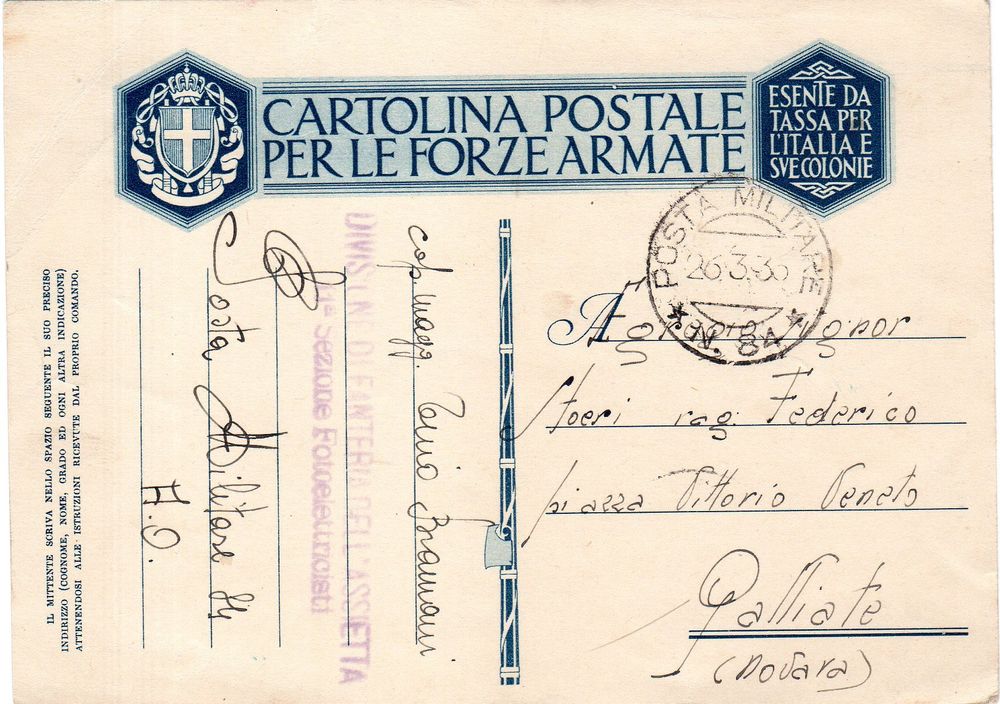 CARTOLINA POSTALE
PER LE FORZE ARMATE
ESENTE DA
TASSA PER
L'ITALIA E
SVE COLONIE
POSTA MILITARE
26.3.36
N. 84
Egregio Signor
rag. Federico
piazza Vittorio Veneto
Galliate
(Novara)
cap. magg. Bramani
DIVISIONE DI FANTERIA DELL'ASSIETTA
1ª Sezione Fotoelettricisti
Posta Militare 84
A.O.
IL MITTENTE SCRIVA NELLO SPAZIO SEGUENTE IL SUO PRECISO
INDIRIZZO (COGNOME, NOME, GRADO ED OGNI ALTRA INDICAZIONE)
ATTENENDOSI ALLE ISTRUZIONI RICEVUTE DAL PROPRIO COMANDO.